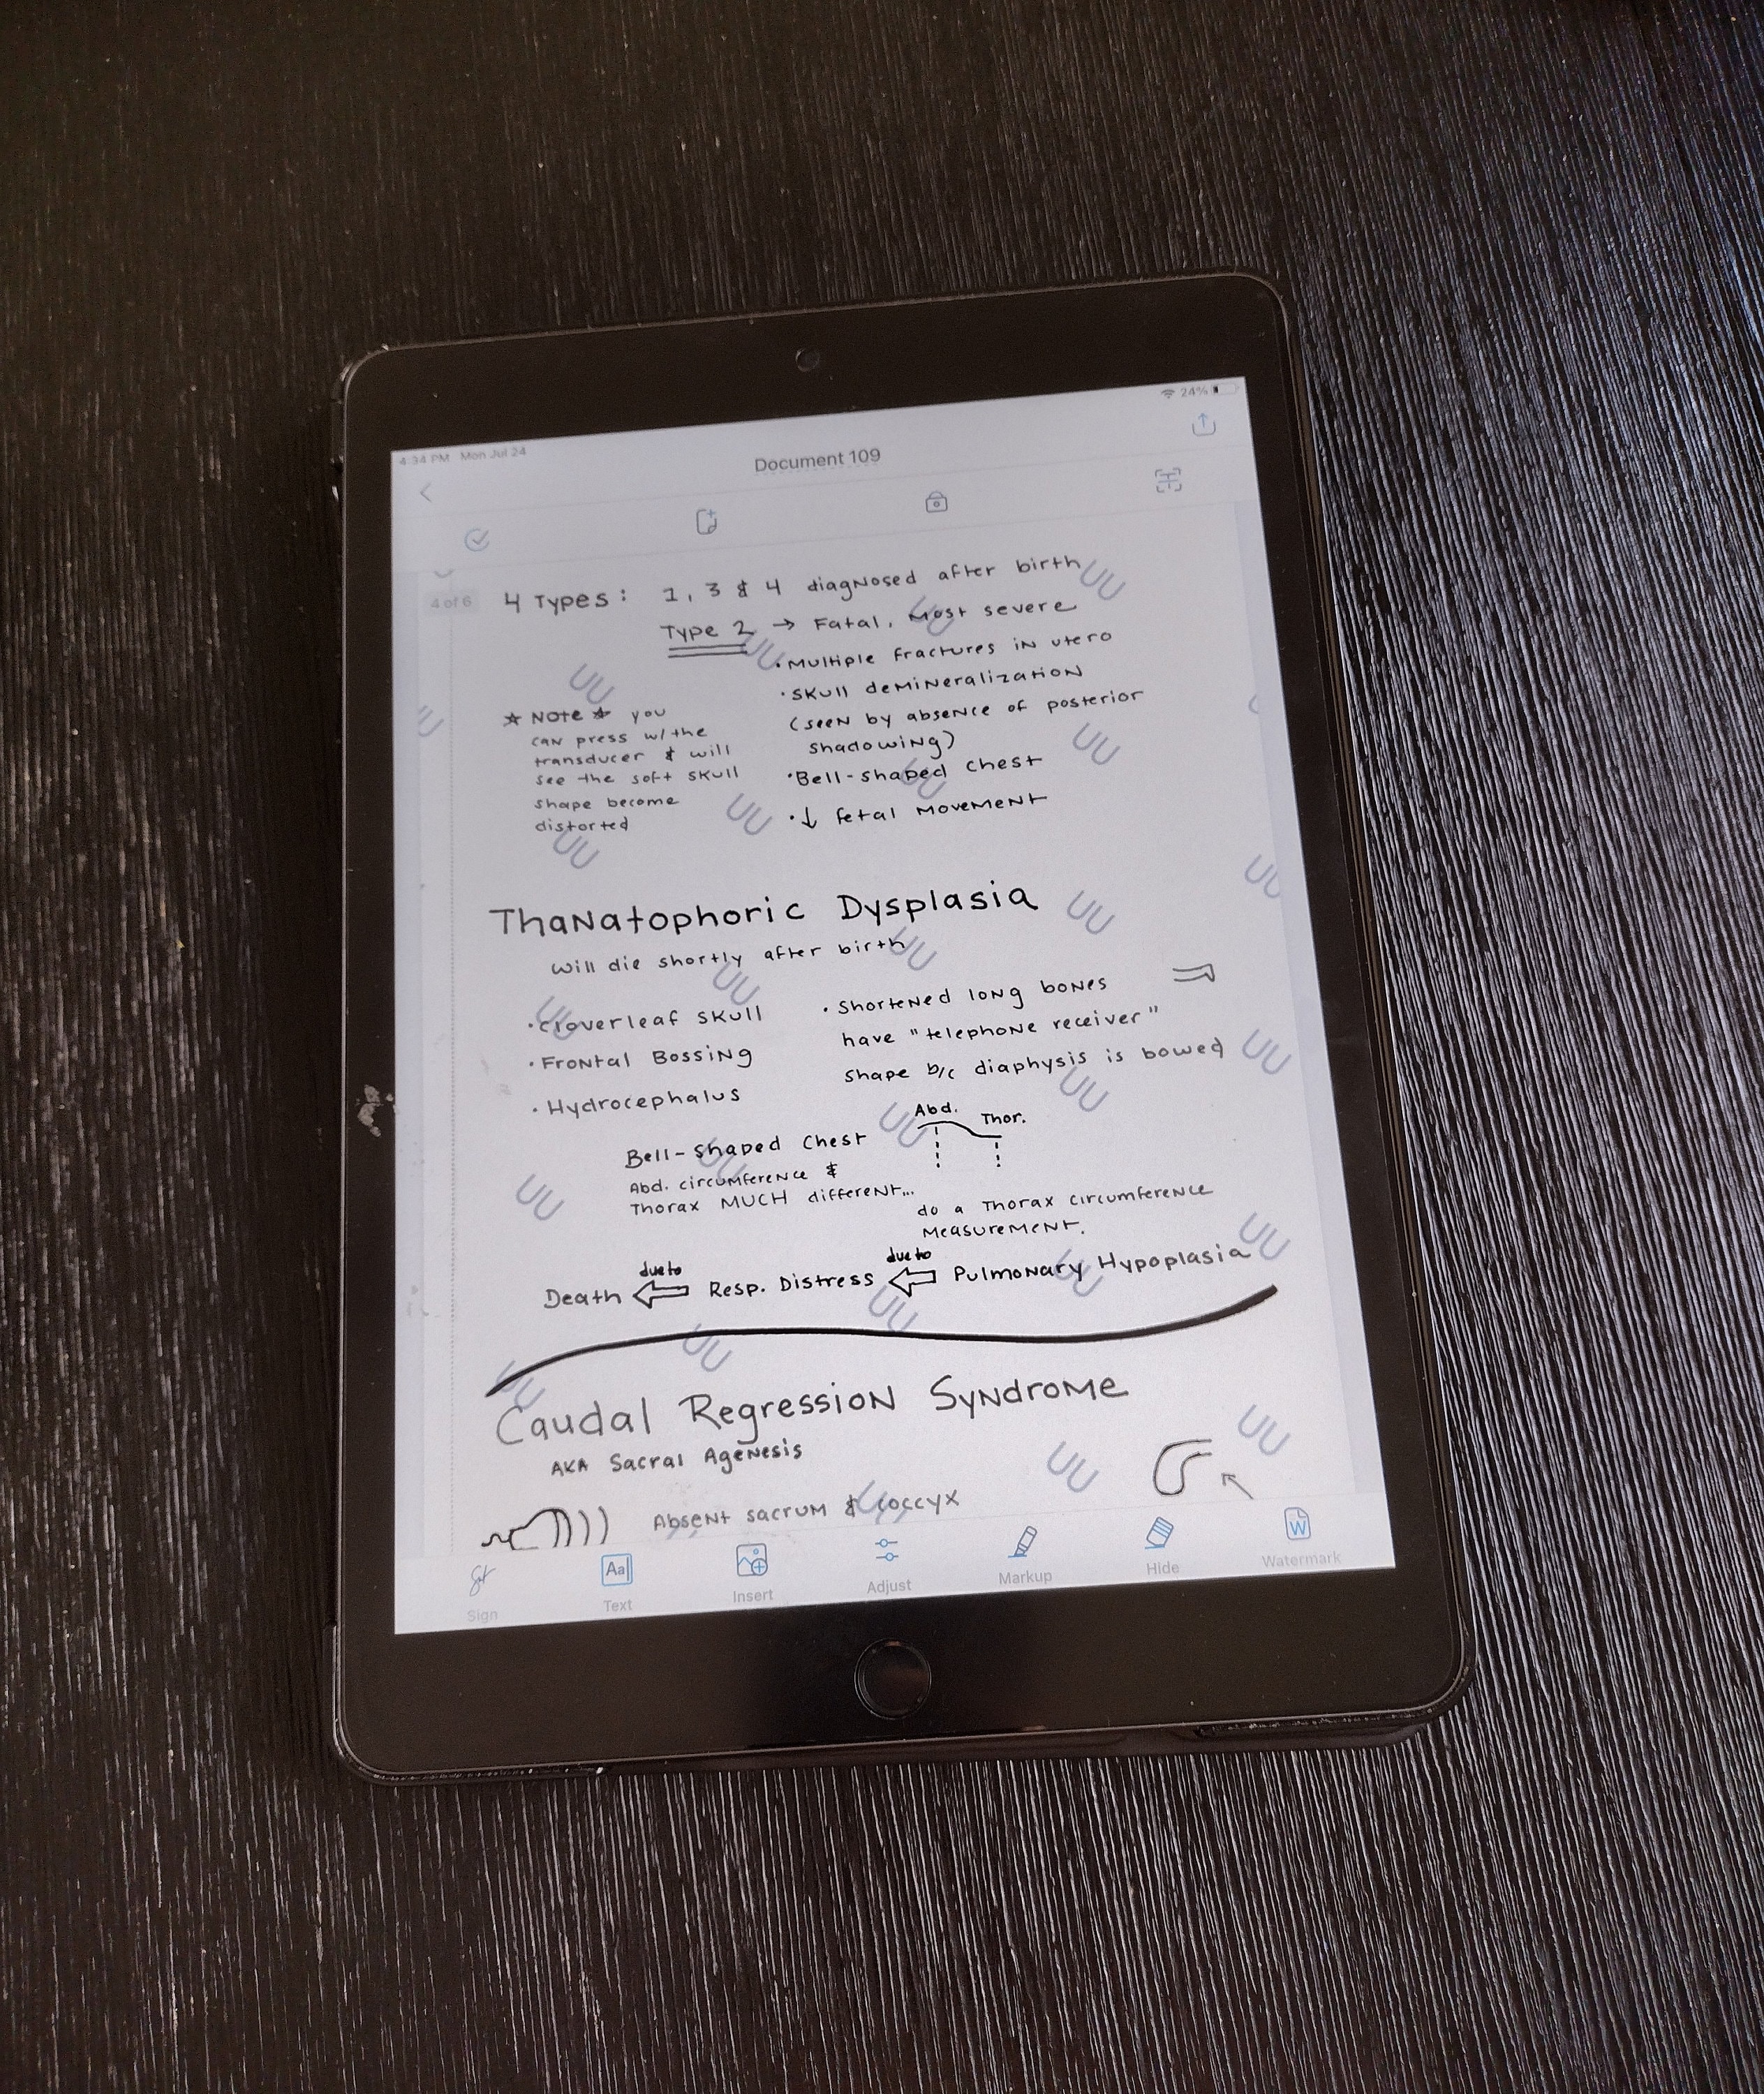 4:34 PM Mon Jul 24
24%
Document 109
4 of 6
4 Types: 1, 3 & 4 diagnosed after birth
Type 2 → Fatal, Most severe
• Multiple fractures in utero
• Skull demineralization
(seen by absence of posterior
shadowing)
• Bell-shaped chest
• ↓ fetal movement
☆ Note ☆ you
can press w/ the
transducer & will
see the soft skull
shape become
distorted
Thanatophoric Dysplasia
will die shortly after birth
• Cloverleaf skull
• Frontal Bossing
• Hydrocephalus
• Shortened long bones
have "telephone receiver"
shape b/c diaphysis is bowed
Bell-shaped chest
Abd. circumference &
Thorax MUCH different...
Abd. Thor.
do a Thorax circumference
measurement.
Death ⇐ due to Resp. Distress ⇐ due to Pulmonary Hypoplasia
Caudal Regression Syndrome
AKA Sacral Agenesis
Absent sacrum & coccyx
Sign
Text
Insert
Adjust
Markup
Hide
Watermark
UU